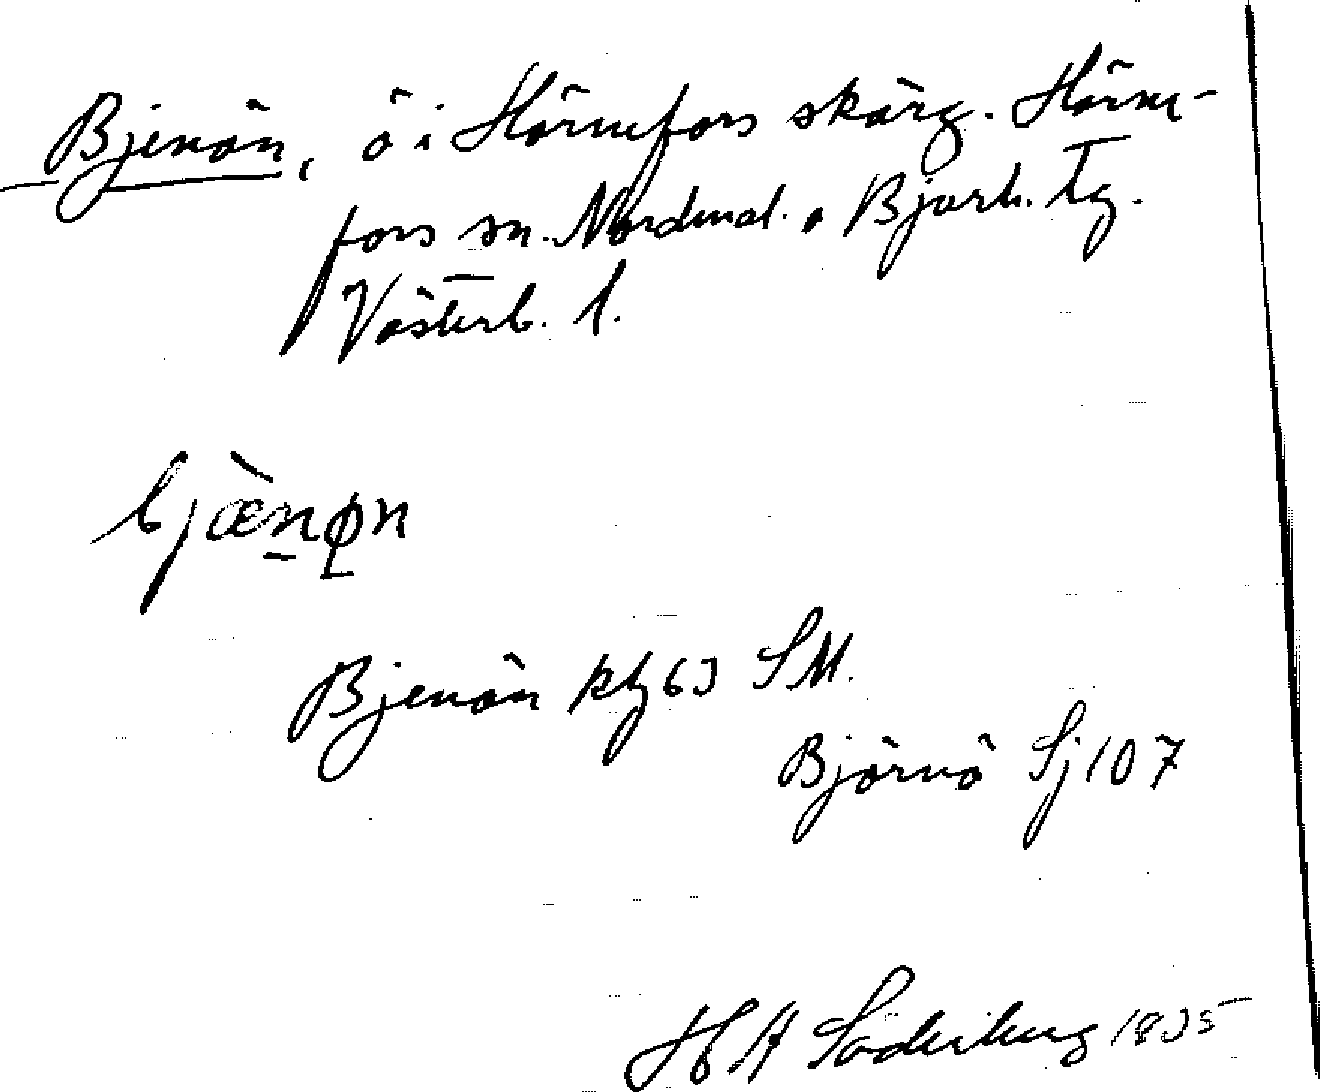 Bjenön, ö i Hörnefors skärg. Hörne-
fors sn. Nordmal. o Bjurh. tg.
Västerb. l.
bjænøn
Bjenön kbl 63 SM.
Björnö Sj 107
H A Söderberg 1935